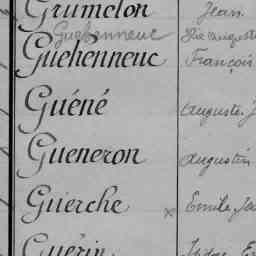 Grumelon Jean
Guehenneuc
Guehenneuc François
Guéné Auguste J
Gueneron Augustin
Guierche x Emile Je
Guérin